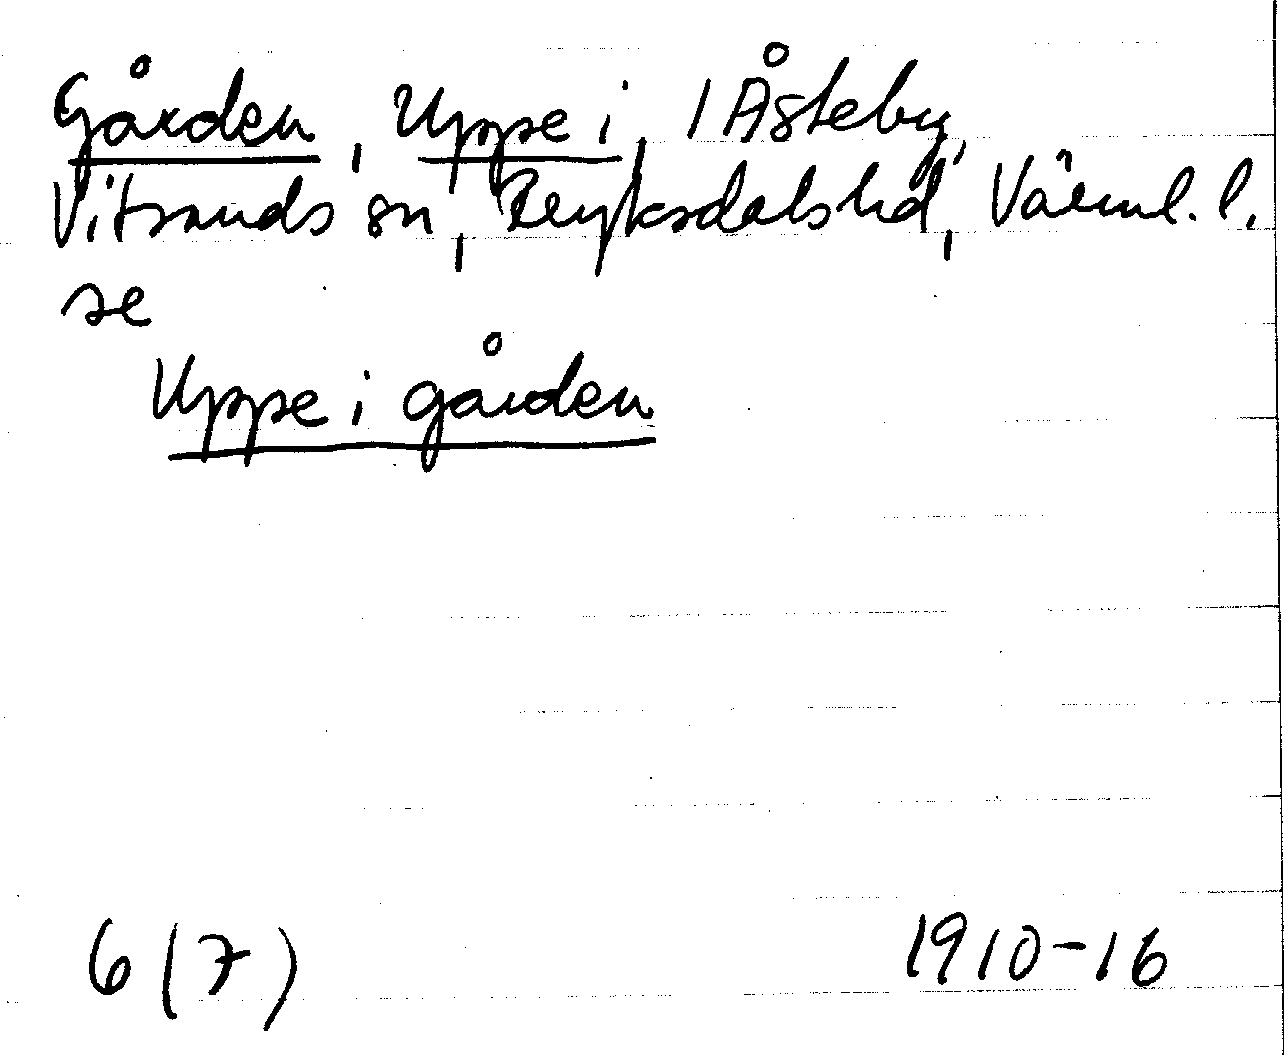 Gården, Uppe i, 1 Åsteby,
Vitsands sn, Fryksdals hd, Värml. l.
se
Uppe i gården
6 (7) 1910-16